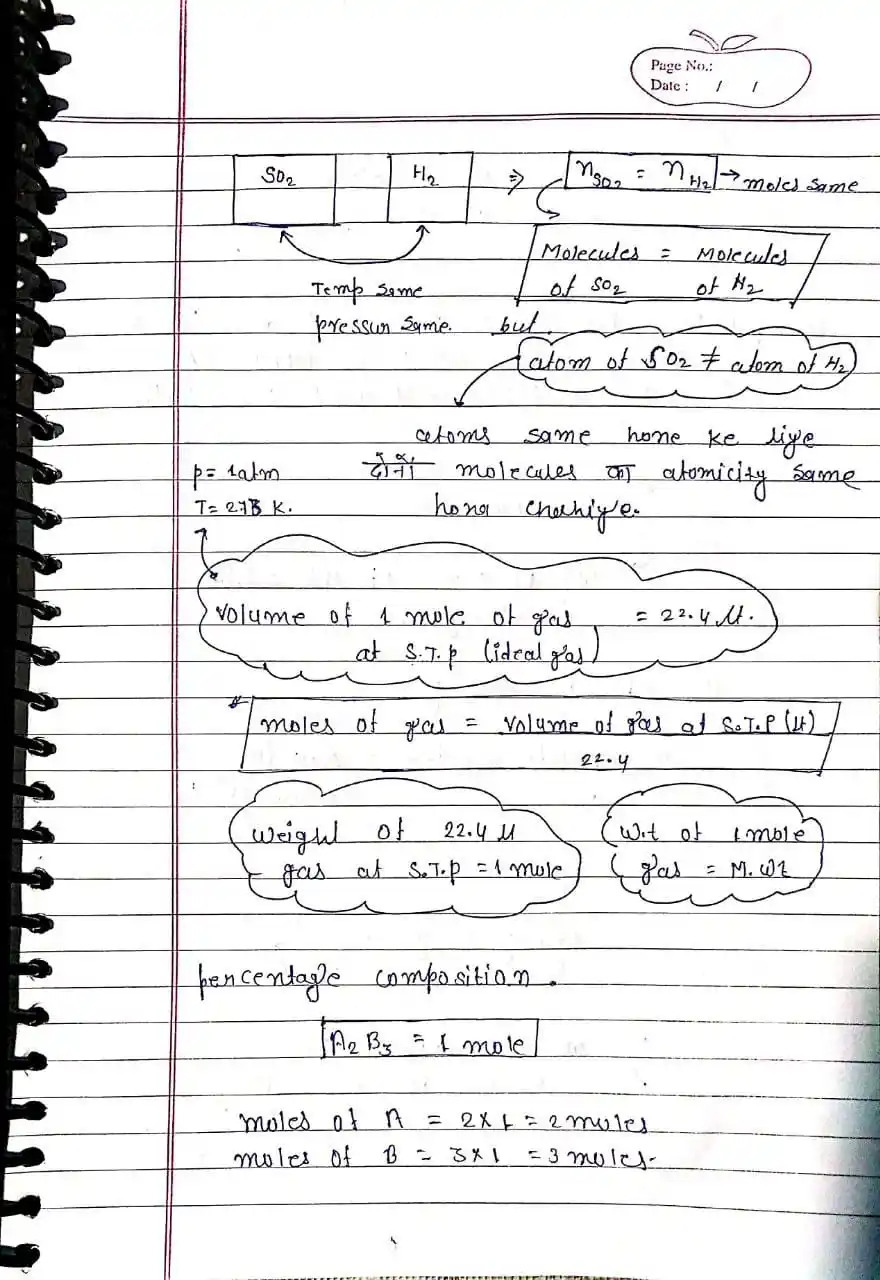 Page No.:
Date : / /
SO2 H2 ⇒ nSO2 = nH2 → moles same
Molecules = Molecules
of SO2 of H2
Temp same
pressur same. but.
atom of SO2 ≠ atom of H2
atoms same hone ke liye
p= 1atm दोनो molecules का atomicity same
T= 273 K. hona chahiye.
volume of 1 mole of gas = 22.4 lt.
at S.T.p (ideal gas)
* moles of gas = volume of gas at S.T.P (lt)
22.4
weight of 22.4 lt
gas at S.T.p = 1 mole
w.t of 1 mole
gas = M. wt
percentage composition.
A2 B3 = 1 mole
moles of A = 2 x 1 = 2 moles
moles of B = 3 x 1 = 3 moles.